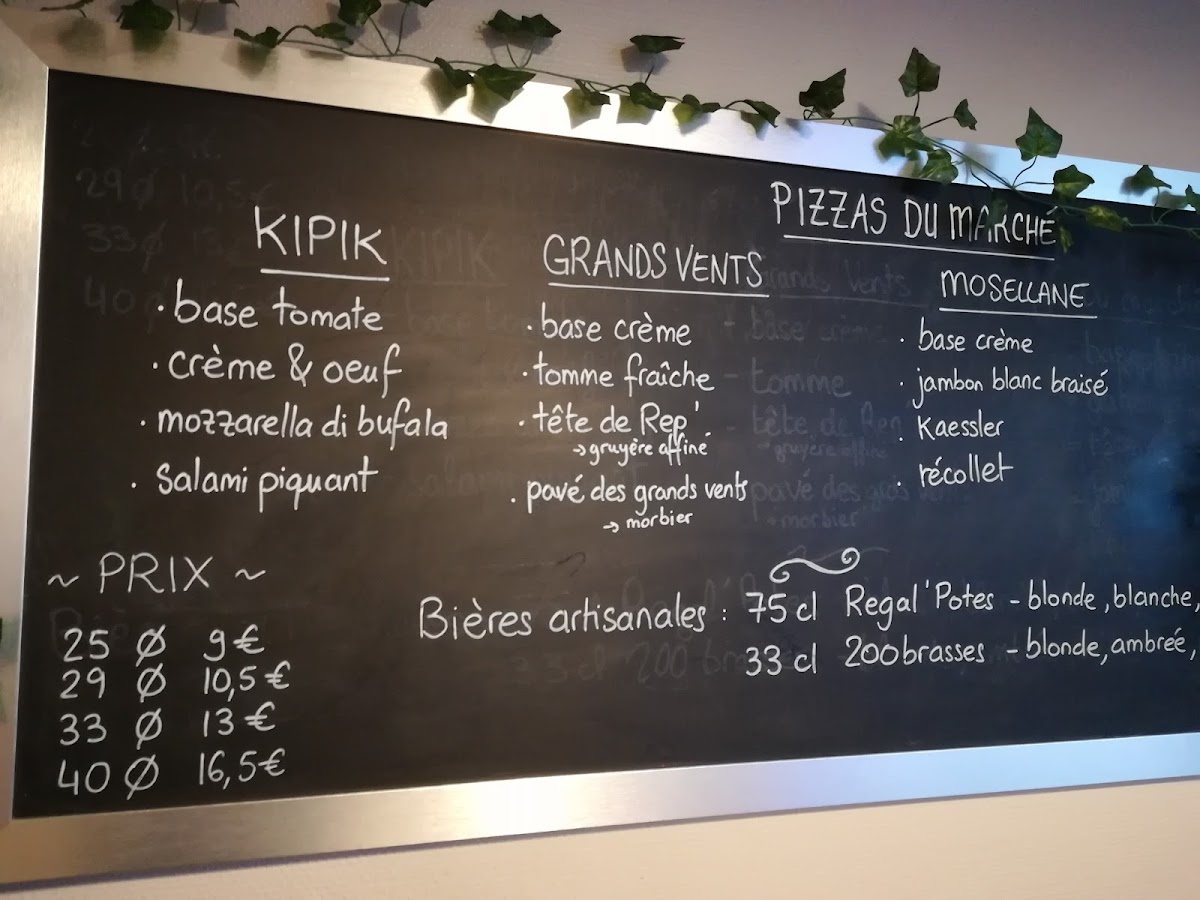 PIZZAS DU MARCHÉ
KIPIK
· base tomate
· crème & oeuf
· mozzarella di bufala
· salami piquant
GRANDS VENTS
· base crème
· tomme fraîche
· tête de Rep'.
→ gruyère affiné
· pavé des grands vents
→ morbier
MOSELLANE
· base crème
· jambon blanc braisé
· Kaessler
· récollet
~ PRIX ~
25 Ø 9€
29 Ø 10,5€
33 Ø 13€
40 Ø 16,5€
Bières artisanales : 75 cl Regal'Potes - blonde, blanche,
33 cl 200brasses - blonde, ambrée,